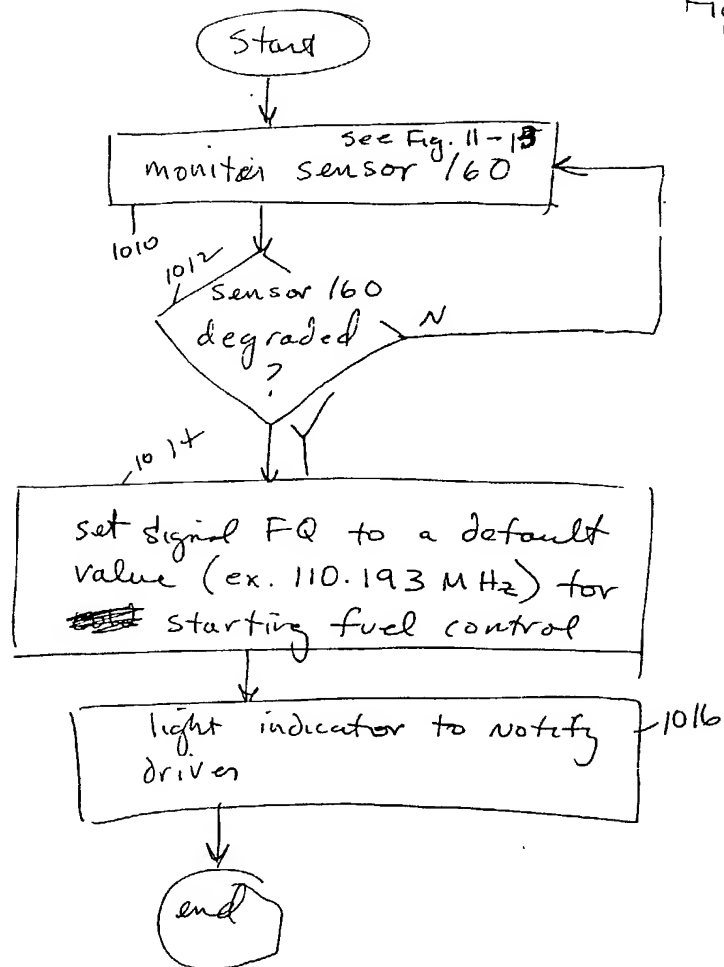 Start
see Fig. 11-15
monitor sensor 160
1010
1012
sensor 160
degraded
?
N
Y
1014
set signal FQ to a default
value (ex. 110.193 MHz) for
starting fuel control
light indicator to notify
driver
1016
end